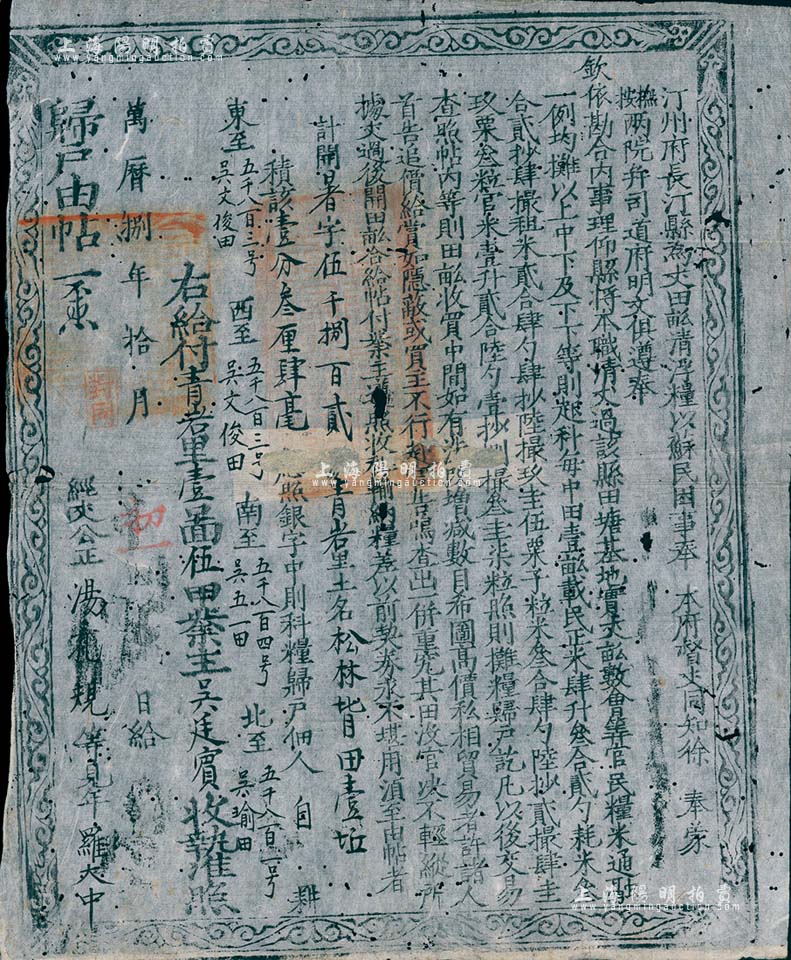 汀州府長汀縣為丈田畝清浮糧以蘇民困事奉 本府督丈同知徐 奉蒙
撫按兩院并司道府明文俱遵奉
欽依勘合內事理仰縣將本職清丈過該縣田塘基地實丈畝數會筭官民糧米通融
一例均攤以上中下及下下等則起科每中田壹畝載民正米肆升叁合貳勺耗米叁
合貳抄肆撮租米貳合肆勺肆抄陸撮玖圭伍粟子粒米叁合肆勺陸抄貳撮肆圭
玖粟叁粒官米壹升貳合陸勺壹抄捌撮叁圭柒粒照則攤糧歸戶訖凡以後交易
查照帖內等則田畝收買中間如有洗改增減數目希圖高價私相貿易者許諸人
首告追價給賞如隱蔽或買主不行赴官告鳴查出一併重究其田沒官决不輕縱所
據丈過後開田畝合給帖付業主收執照收租輸納糧差以前執券永不堪用須至由帖者
計開暑字伍千捌百貳 青岩里土名松林背田壹坵
積該壹分叁厘肆毫 應照銀字中則科糧歸戶佃人 自 耕
東至 五千八百三号 吳文俊田 西至 五千八百三号 吳文俊田 南至 五千八百四号 吳五一田 北至 五千八百一号 吳瑜田
右給付青岩里壹啚伍甲業主吳廷賓收執准照
萬曆捌年拾月 初一 日給
對同
歸戶由帖 一樣
經丈公正 湯 規 等 羅大中
上海陽明拍賣
www.yangmingauction.com
上海陽明拍賣
www.yangmingauction.com
上海陽明拍賣
www.yangmingauction.com
上海陽明拍賣
www.yangmingauction.com
上海陽明拍賣
www.yangmingauction.com